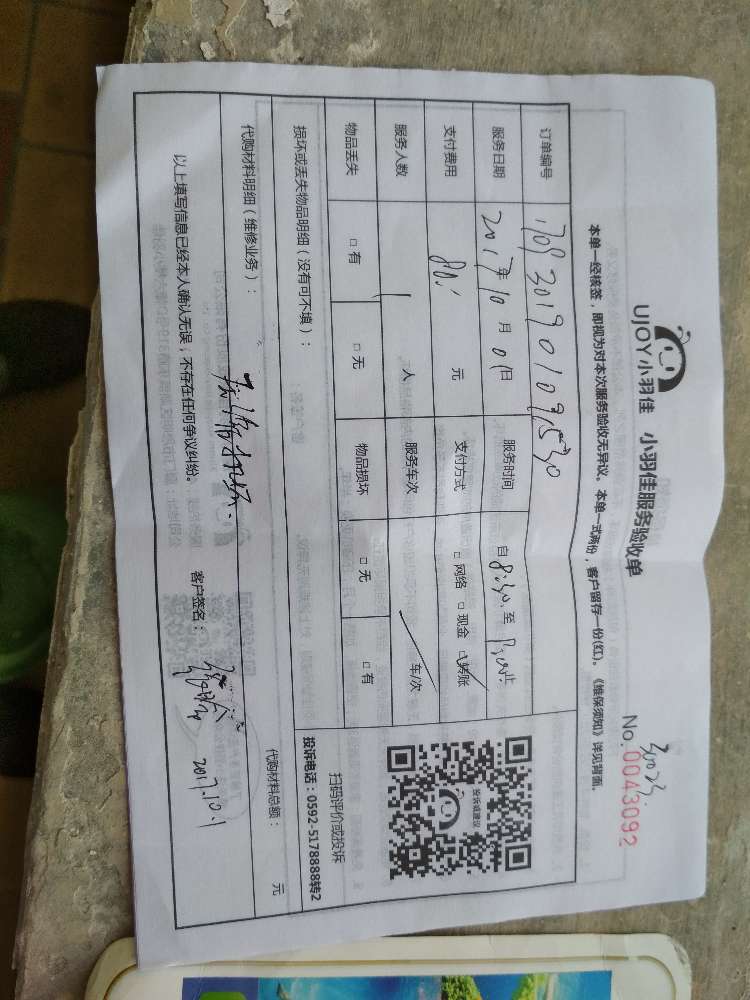 UJOY小羽佳 小羽佳服务验收单
No. 0043092
本单一经核签，即视为对本次服务验收无异议。本单一式两份，客户留存一份(红)。《维保须知》详见背面。
订单编号
服务日期 2017年10月01日 服务时间 自8:30至 止
支付费用 80 元 支付方式 □网络 □现金 □转账
服务人数 1 人 服务车次 车/次
物品丢失 □有 □无 物品损坏 □无 □有
投诉或建议
扫码评价或投诉
投诉电话：0592-5178888转2
损坏或丢失物品明细（没有可不填）：
代购材料明细（维修业务）： 代购材料总额： 元
以上填写信息已经本人确认无误，不存在任何争议纠纷。 客户签名： 2017.10.1